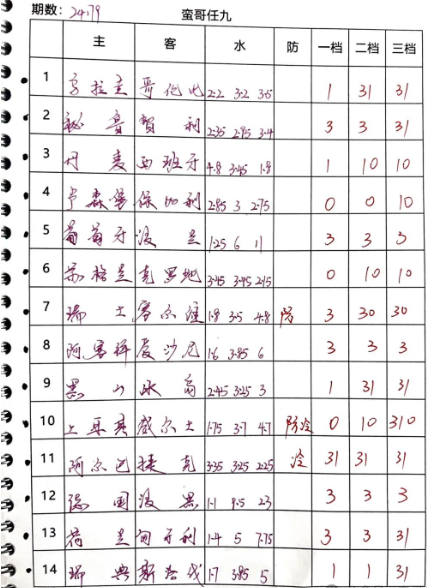 期数：24179 蛮哥任九
主 客 水 防 一档 二档 三档
1 乌拉圭 哥伦比 2.2 3.2 3.5 1 31 31
2 秘鲁 智利 2.35 2.95 3.4 3 3 31
3 丹麦 西班牙 4.8 3.45 1.8 1 10 10
4 卢森堡 保加利 2.85 3 2.75 0 0 10
5 葡萄牙 波兰 1.25 6 11 3 3 3
6 苏格兰 克罗地 3.45 3.45 2.15 0 10 10
7 瑞士 塞尔维 1.8 3.5 4.8 防 3 30 30
8 阿塞拜 爱沙尼 1.6 3.85 6 3 3 3
9 黑山 冰岛 2.45 3.25 3 1 31 31
10 土耳其 威尔士 1.75 3.7 4.7 防冷 0 10 310
11 阿尔巴 捷克 3.35 3.25 2.25 冷 31 31 31
12 德国 波黑 1.1 9.5 23 3 3 3
13 荷兰 匈牙利 1.4 5 7.75 3 3 31
14 瑞典 斯洛伐 1.7 3.85 5 1 1 31